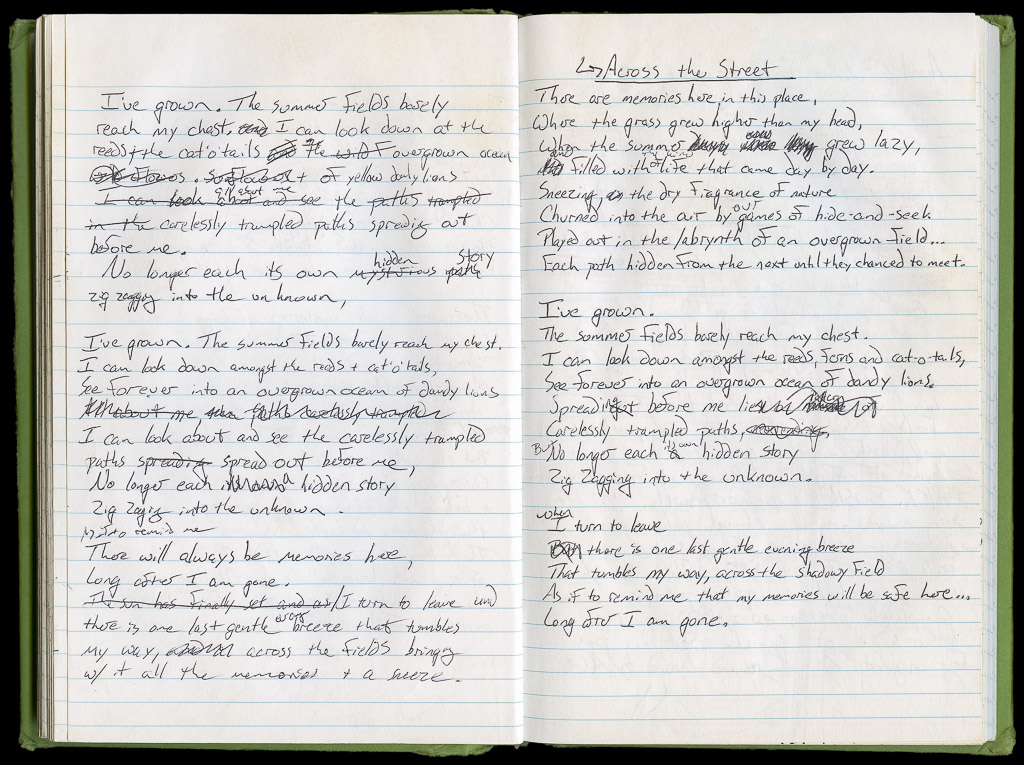 I've grown. The summer fields barely
reach my chest. I can look down at the
reeds + the cat'o'tails the wild overgrown ocean
+ of yellow dandy lions
I can look all about me and see the paths trampled
in the carelessly trampled paths spreadig out
before me.
No longer each its own hidden story
zig zaggig into the unknown,
I've grown. The summer fields barely reach my chest.
I can look down amongst the reeds + cat'o'tails,
See forever into an overgrown ocean of dandy lions
about me paths carelessly trampled
I can look about and see the carelessly trampled
paths spreadig spread out before me,
No longer each a hidden story
Zig Zagig into the unknown.
As if to remind me
There will always be memories here,
Long after I am gone.
The sun has finally set and as I turn to leave and
there is one last gentle breeze that tumbles
my way, across the fields bringig
w/ it all the memories + a sneeze.
↳ Across the Street
There are memories here in this place,
Where the grass grew higher than my head,
When the summer grew lazy,
and filled with life that came day by day.
Sneezing, the dry fragrance of nature
Churned into the air by our games of hide-and-seek
Played out in the labrynth of an overgrown field...
Each path hidden from the next until they chanced to meet.
I've grown.
The summer fields barely reach my chest.
I can look down amongst the reeds, ferns and cat-o-tails,
See forever into an overgrown ocean of dandy lions.
Spreading before me lies
Carelessly trampled paths,
But No longer each its own hidden story
Zig Zagging into the unknown.
When
I turn to leave
there is one last gentle evening breeze
That tumbles my way, across the shadowy field
As if to remind me that my memories will be safe here...
Long after I am gone.